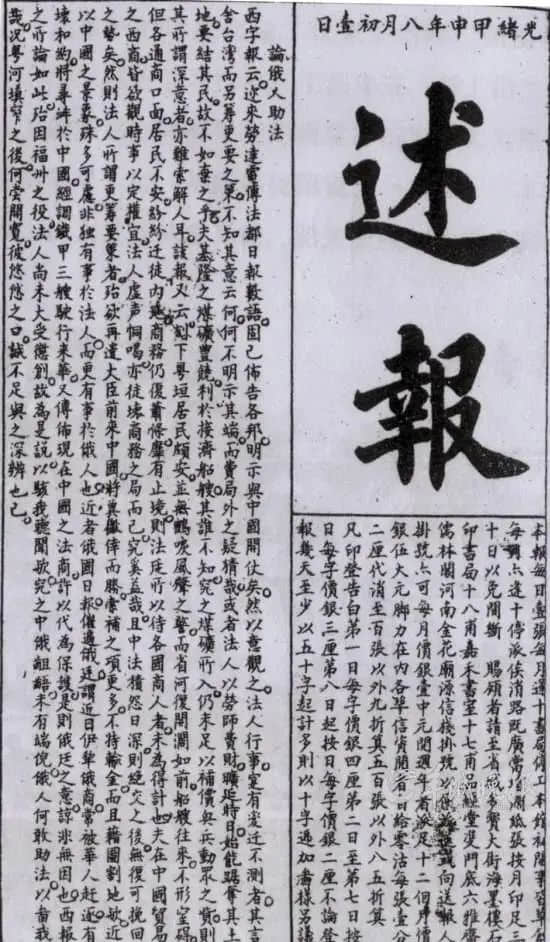 光緒甲申年八月初壹日
述報
本報每日壹張每月逢十書局停工本館
每月逢十停派俟消路既廣常增潤紙張按月足三
十日以免間斷 賜顧者請至省 大街海墨樓石
印書局十八甫嘉禾書室十七甫品經堂雙門底六雅齋
儒林閣河南金花廟源信棧掛號 向送報人
掛號亦可每月價銀壹中元閏週年者派足十二個月價
銀伍大元腳力在內各埠信資閱者自給零沽每張壹分
二厘代消至百張以外九折算五百張以外八五折算
凡印登告白第一日每字價銀四厘第二日至第七日按
日每字價銀三厘第八日起按日每字價銀二厘不論登
報幾天至少以五十字起計多則以十字遞加書樣另議
論俄人助法
西字報云近來勞連當傳法都日報數語固已佈告各邦明示與中國開仗矣然以意觀之法人行事寔有密近不測者其言
舍台灣而另籌更要之策不知其意云何何不明示其端而費局外之疑猜哉或者法人以勞師費財曠延時日始能踞奪其土
地要結其民故不如棄之乎夫基隆之煤礦豐饒利於接濟船艘其誰不知究之煤礦所入仍未足以補償興兵動眾之貲則
其所謂深意者亦難索解人耳該報又云刻下粵垣居民頗安並無鶴唳風聲之警而省河復開瀾如前船艘往來不形窒礙
但各通商口面居民不安紛紛迁徙內地商務仍復蕭條靡有止境則法廷所以待各國商人者未為得計也夫在中國貿易
之西商皆欲觀時事以定權宜法人虛声恫喝亦徒壞商務之局而已究奚益哉且中法積怨日深則絕交之後無復可挽回
之勢矣然則法人所謂更籌要策者殆欲再遣大臣前來中國將冀徼倖而勝索補之項更多不持輸金而且藉圖割地歟近
以中國之景象殊多可慮非獨有事於法人而更有事於俄人也近者俄國日報備過俄廷謂近日伊犁俄商常被華人赶逐有
壞和約將尋衅於中國經調鐵甲三艘駛行來華又傳佈現在中國之法商許以代為保護是則俄廷之意諒非無因也西報
之所論如此殆因福州之役法人尚未大受懲創故為是說以駭我聽聞歟究之中俄齟齬未有端倪俄人何敢助法以啻我
哉況粵河填窄之後何嘗開寬彼悠悠之口誠不足與之深辨也已